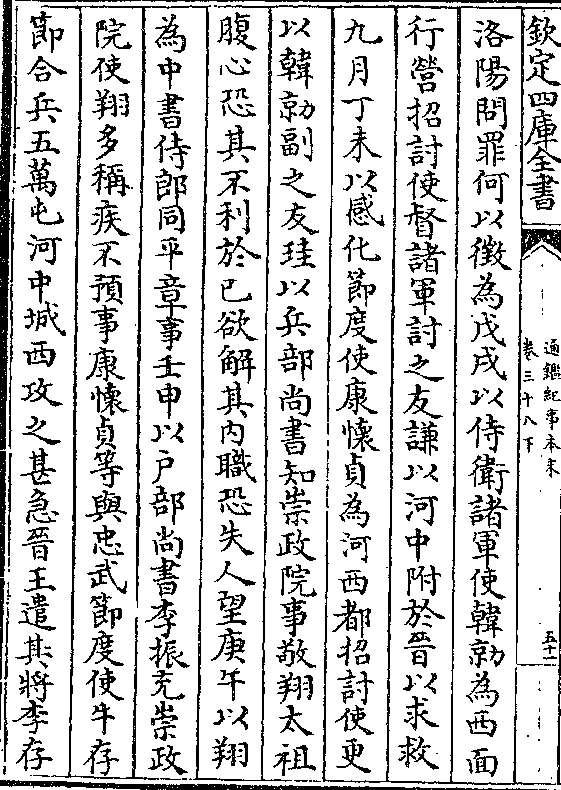 欽定四庫全書
通鑑紀事本末
卷三十八下
五十一
洛陽問罪何以徵為戊戌以侍衛諸軍使韓勍為西面
行營招討使督諸軍討之友謙以河中附於晉以求救
九月丁未以感化節度使康懷貞為河西都招討使更
以韓勍副之友珪以兵部尚書知崇政院事敬翔太祖
腹心恐其不利於己欲解其内職恐失人望庚午以翔
為中書侍郎同平章事壬申以户部尚書李振充崇政
院使翔多稱疾不預事康懷貞等與忠武節度使牛存
節合兵五萬屯河中城西攻之甚急晉王遣其將李存